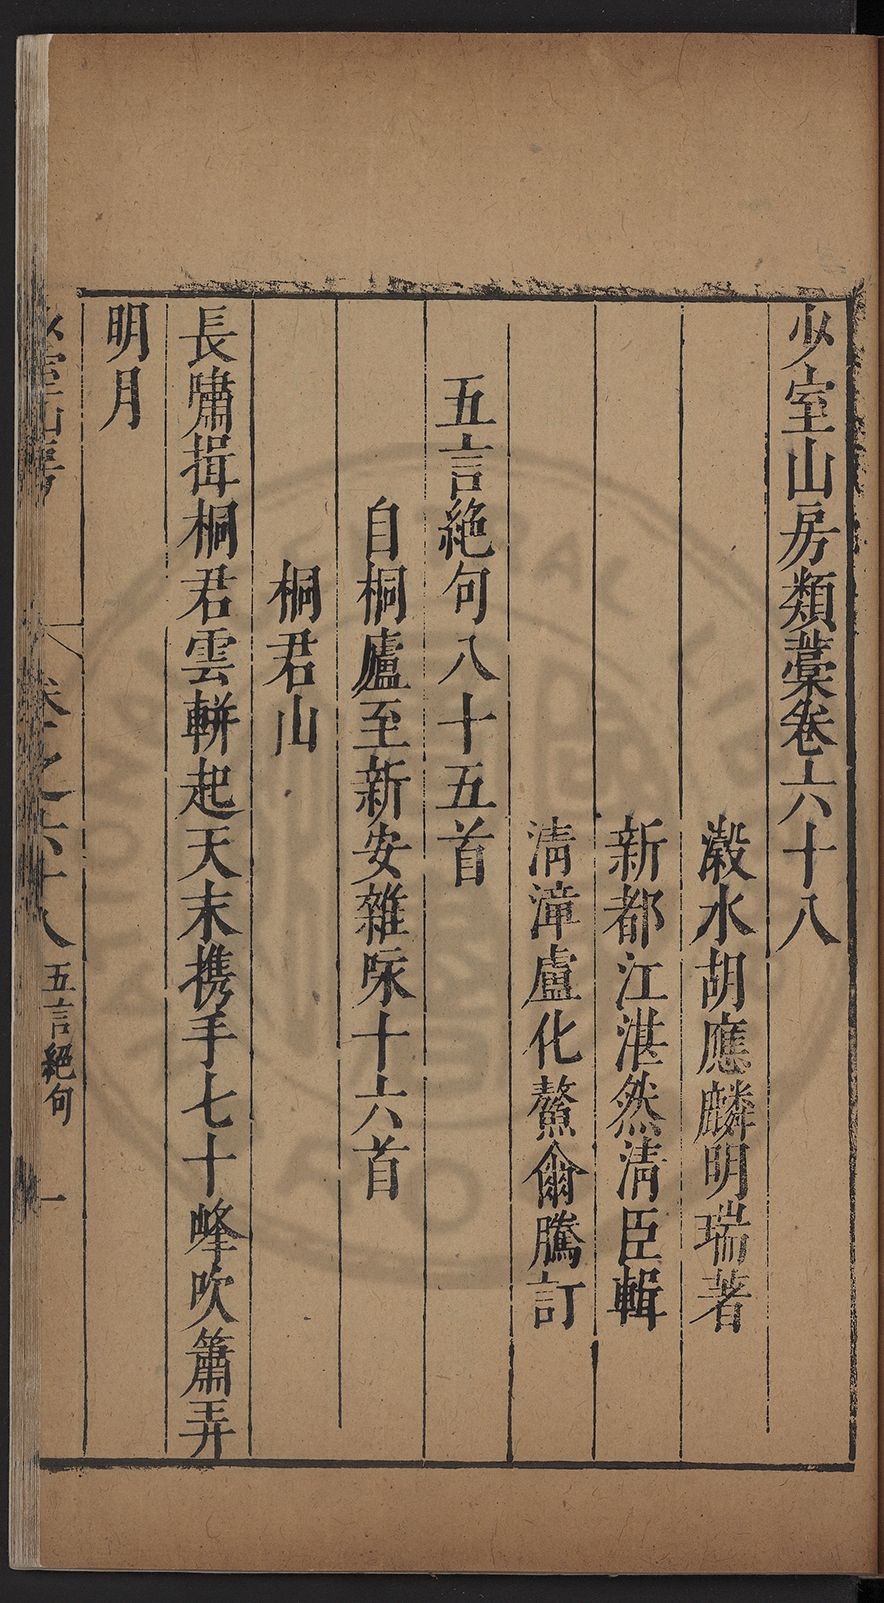 少室山房類藁卷六十八
瀫水胡應麟明瑞著
新都江湛然清臣輯
清漳盧化鰲尒騰訂
五言絶句八十五首
自桐廬至新安雜咏十六首
桐君山
長嘯揖桐君雲軿起天末携手七十峰吹簫弄
明月
少室山房
卷之六十八
五言絶句
一